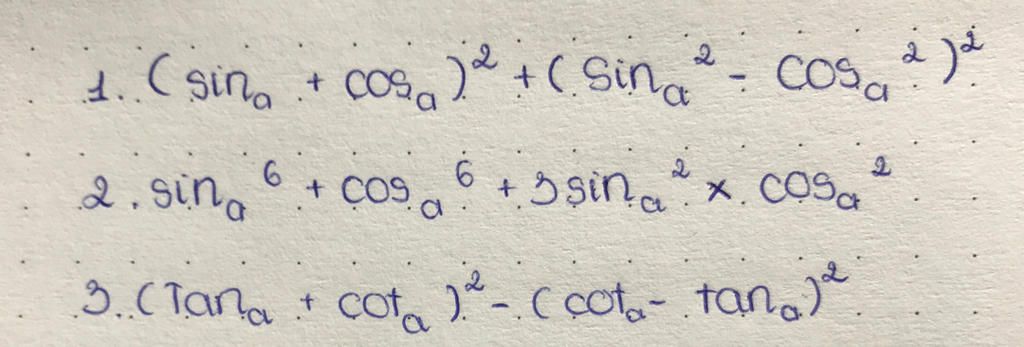 1. (sinₐ + cosₐ)² + (sinₐ² - cosₐ²)²
2. sinₐ⁶ + cosₐ⁶ + 3sinₐ² × cosₐ²
3. (Tanₐ + cotₐ)² - (cotₐ - tanₐ)²